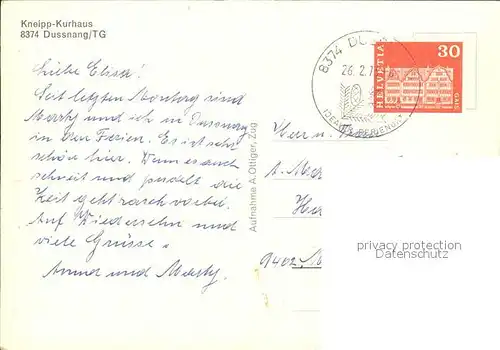 Kneipp-Kurhaus
8374 Dussnang/TG
Liebe Elisa!
Seit letzten Montag sind
Marty und ich in Dussnang
in den Ferien. Es ist sehr
schön hier. Wenn es auch
schneit und pudelt die
Zeit geht rasch vorbei.
Auf Wiedersehn und
viele Grüsse.
Anna und Marty
Aufnahme A. Ottiger, Zug
8374 DUSS
26.2.7
HELVETIA
30
Herrn u.
A.
9402
privacy protection
Datenschutz